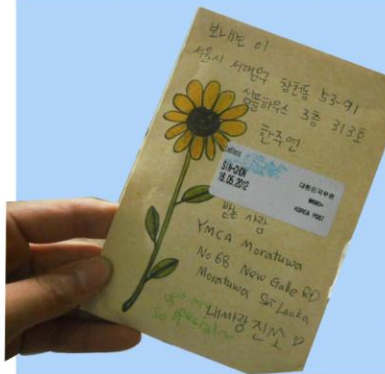 보내는 이
서울시 서대문구 창천동 53-91
심플하우스 3층 313호
한주연
SINCHON
18.05.2012
대한민국우편
KOREA POST
받는 사람
YMCA Moratuwa
No 68 New Galle RD
Moratuwa Sri Lanka
내사랑 진
you my
so special